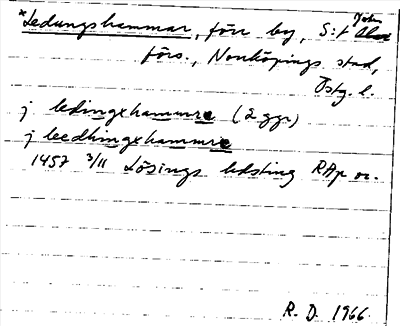 *Ledungshammar, förr by, S:t Johs
förs., Norrköpings stad,
Östg. l.
j ledingxhammre (2 ggr)
j leedhingxhammre
1457 3/11 Lösings häradsting RAp or.
R. D. 1966.